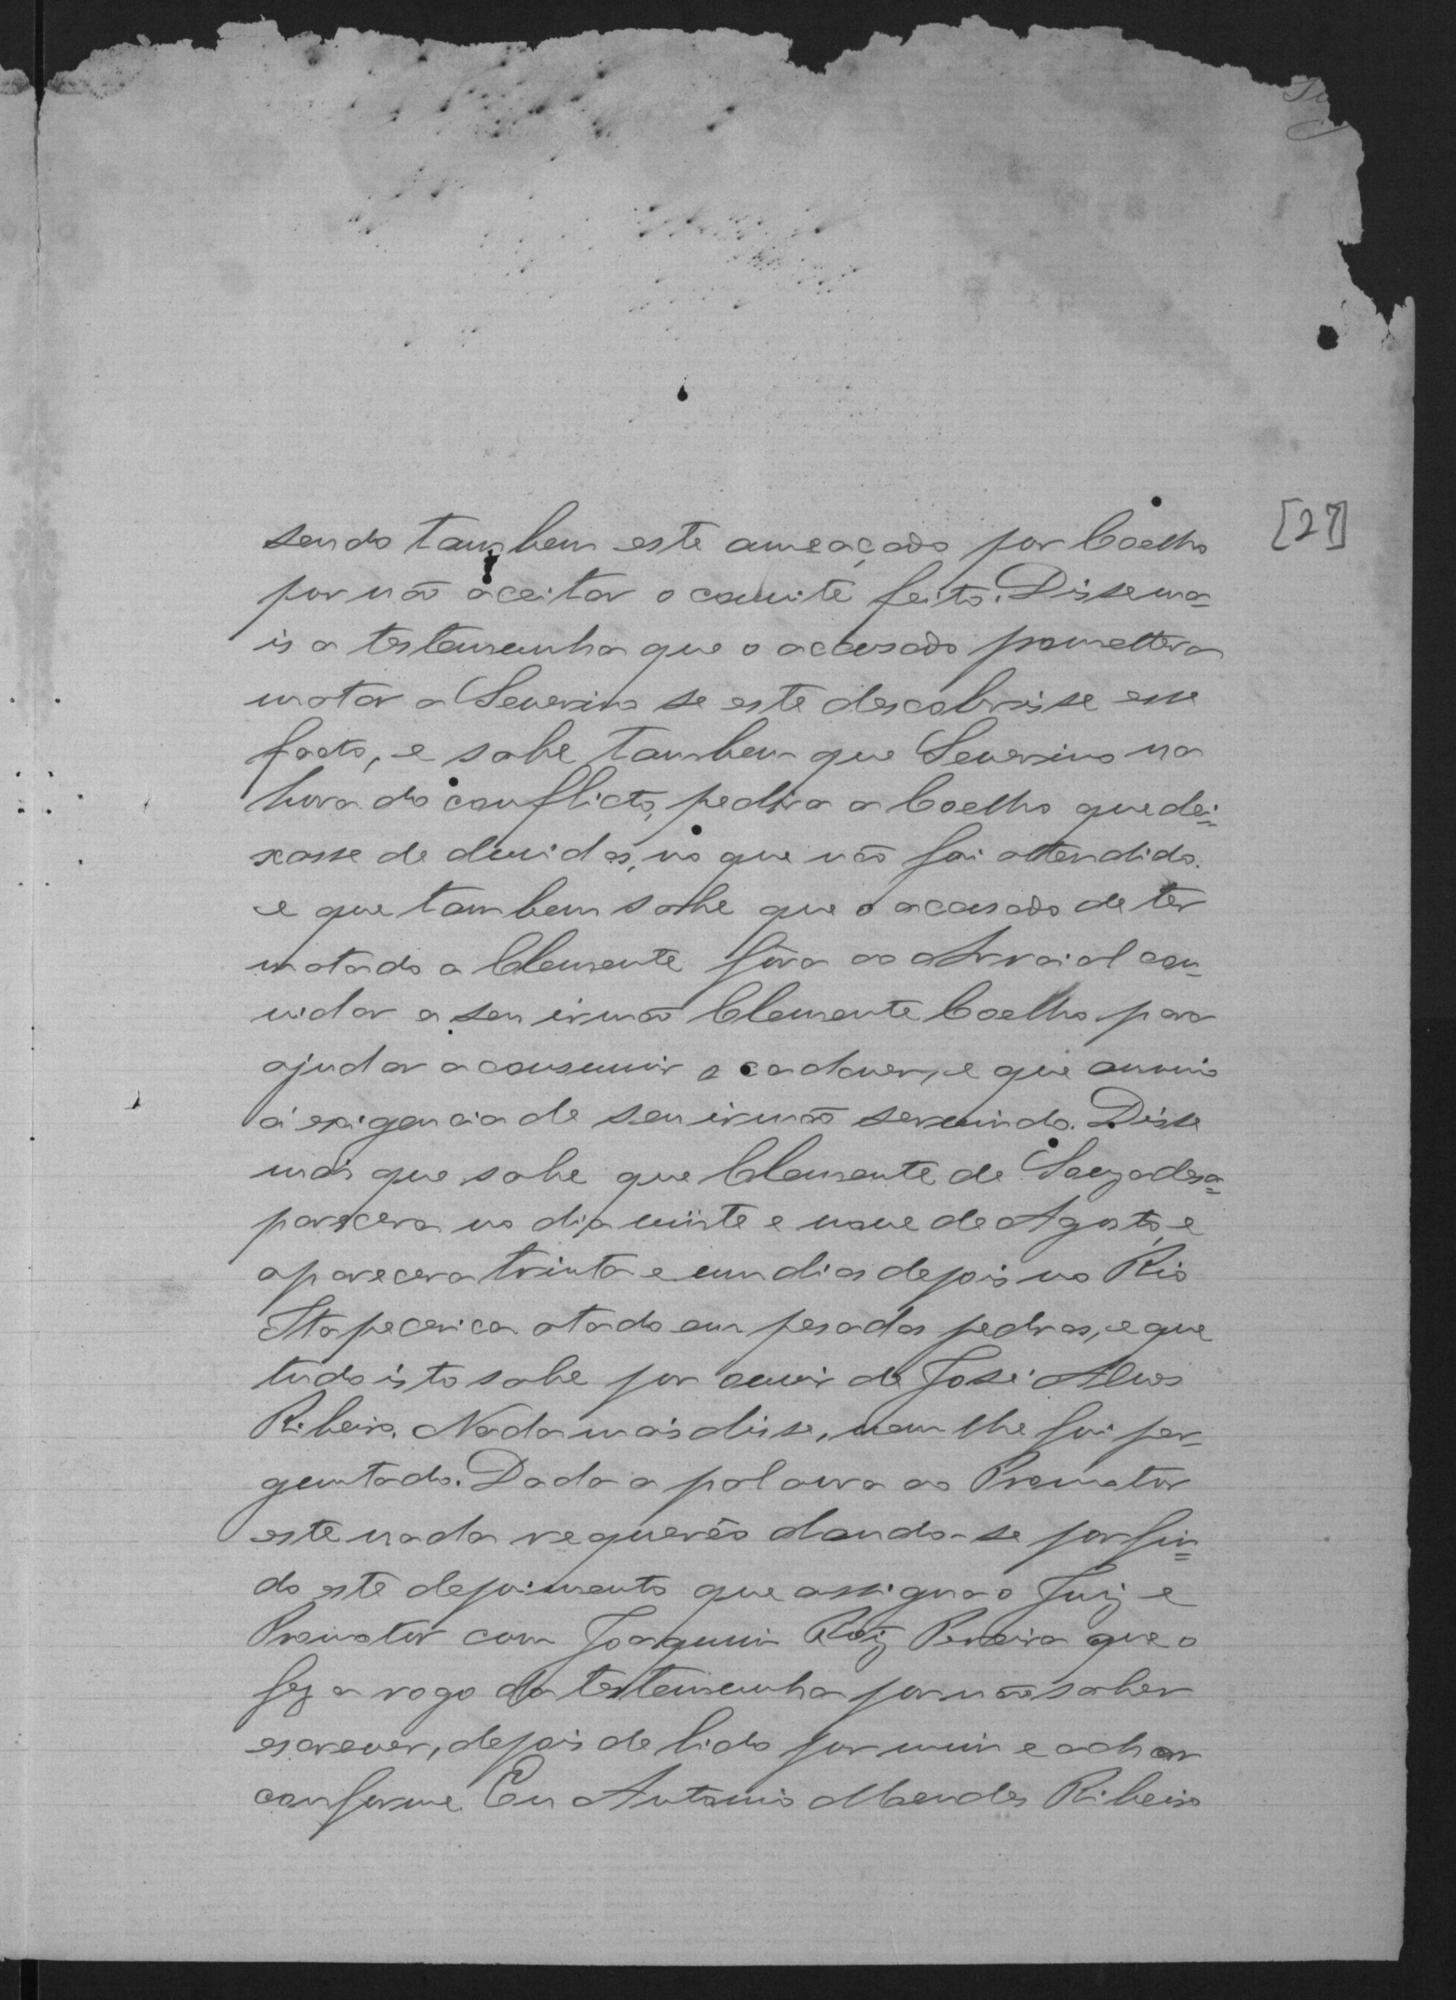 [27]
sendo tambem este ameaçado por Coelho
por não aceitar o convite feito. Disse ma-
is a testemunha que o accusado promettera
matar a Severino se este descobrisse esse
facto, e sabe tambem que Severino na
hora do conflicto, pedira a Coelho que dei-
xasse de duvidas, no que não foi attendido.
e que tambem sabe que o acusado de ter
matado a Clemente fôra ao Arraial con-
vidar a seu irmão Clemente Coelho para
ajudar a consumir o cadaver, e que annuio
á exigencia de seu irmão servindo. Disse
mais que sabe que Clemente de Souza desa-
parecera no dia vinte e nove de Agosto, e
aparecera trinta e um dias depois no Rio
Itapecerica atado em pesadas pedras, e que
tudo isto sabe por ouvir de José Alves
Ribeiro. Nada mais disse, nem lhe foi per-
guntado. Dada a palavra ao Promotor
este nada requereo dando-se por fin-
do este depoimento que assigna o Juiz e
Promotor com Joaquim Roiz Pereira que o
fez a rogo da testemunha por não saber
escrever, depois de lido por mim e achar
conforme Eu Antonio Mendes Ribeiro